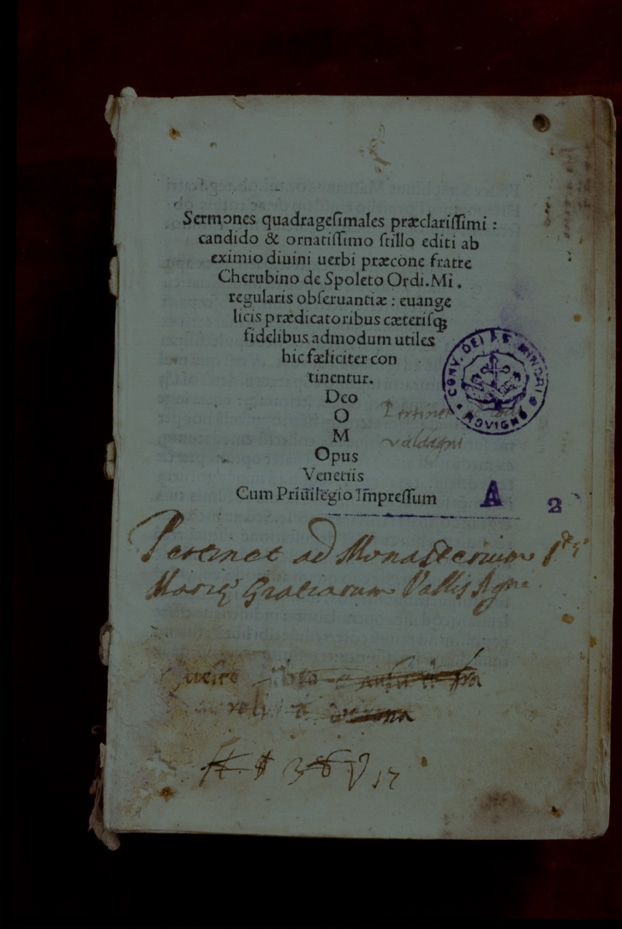 Sermones quadragesimales præclarissimi :
candido & ornatissimo stillo editi ab
eximio diuini uerbi præcone fratre
Cherubino de Spoleto Ordi. Mi .
regularis obseruantiæ : euange
licis prædicatoribus cæterisqꝫ
fidelibus admodum utiles
hic fæliciter con
tinentur.
Deo
O
M
Opus
Venetiis
Cum Priuilegio Impressum
CONV. DEI MINORI
ROVIGNO
Pertinet
valdagni
A 2
Pertinet ad Monasterium
Marię Gratiarum Vallis Agni
17